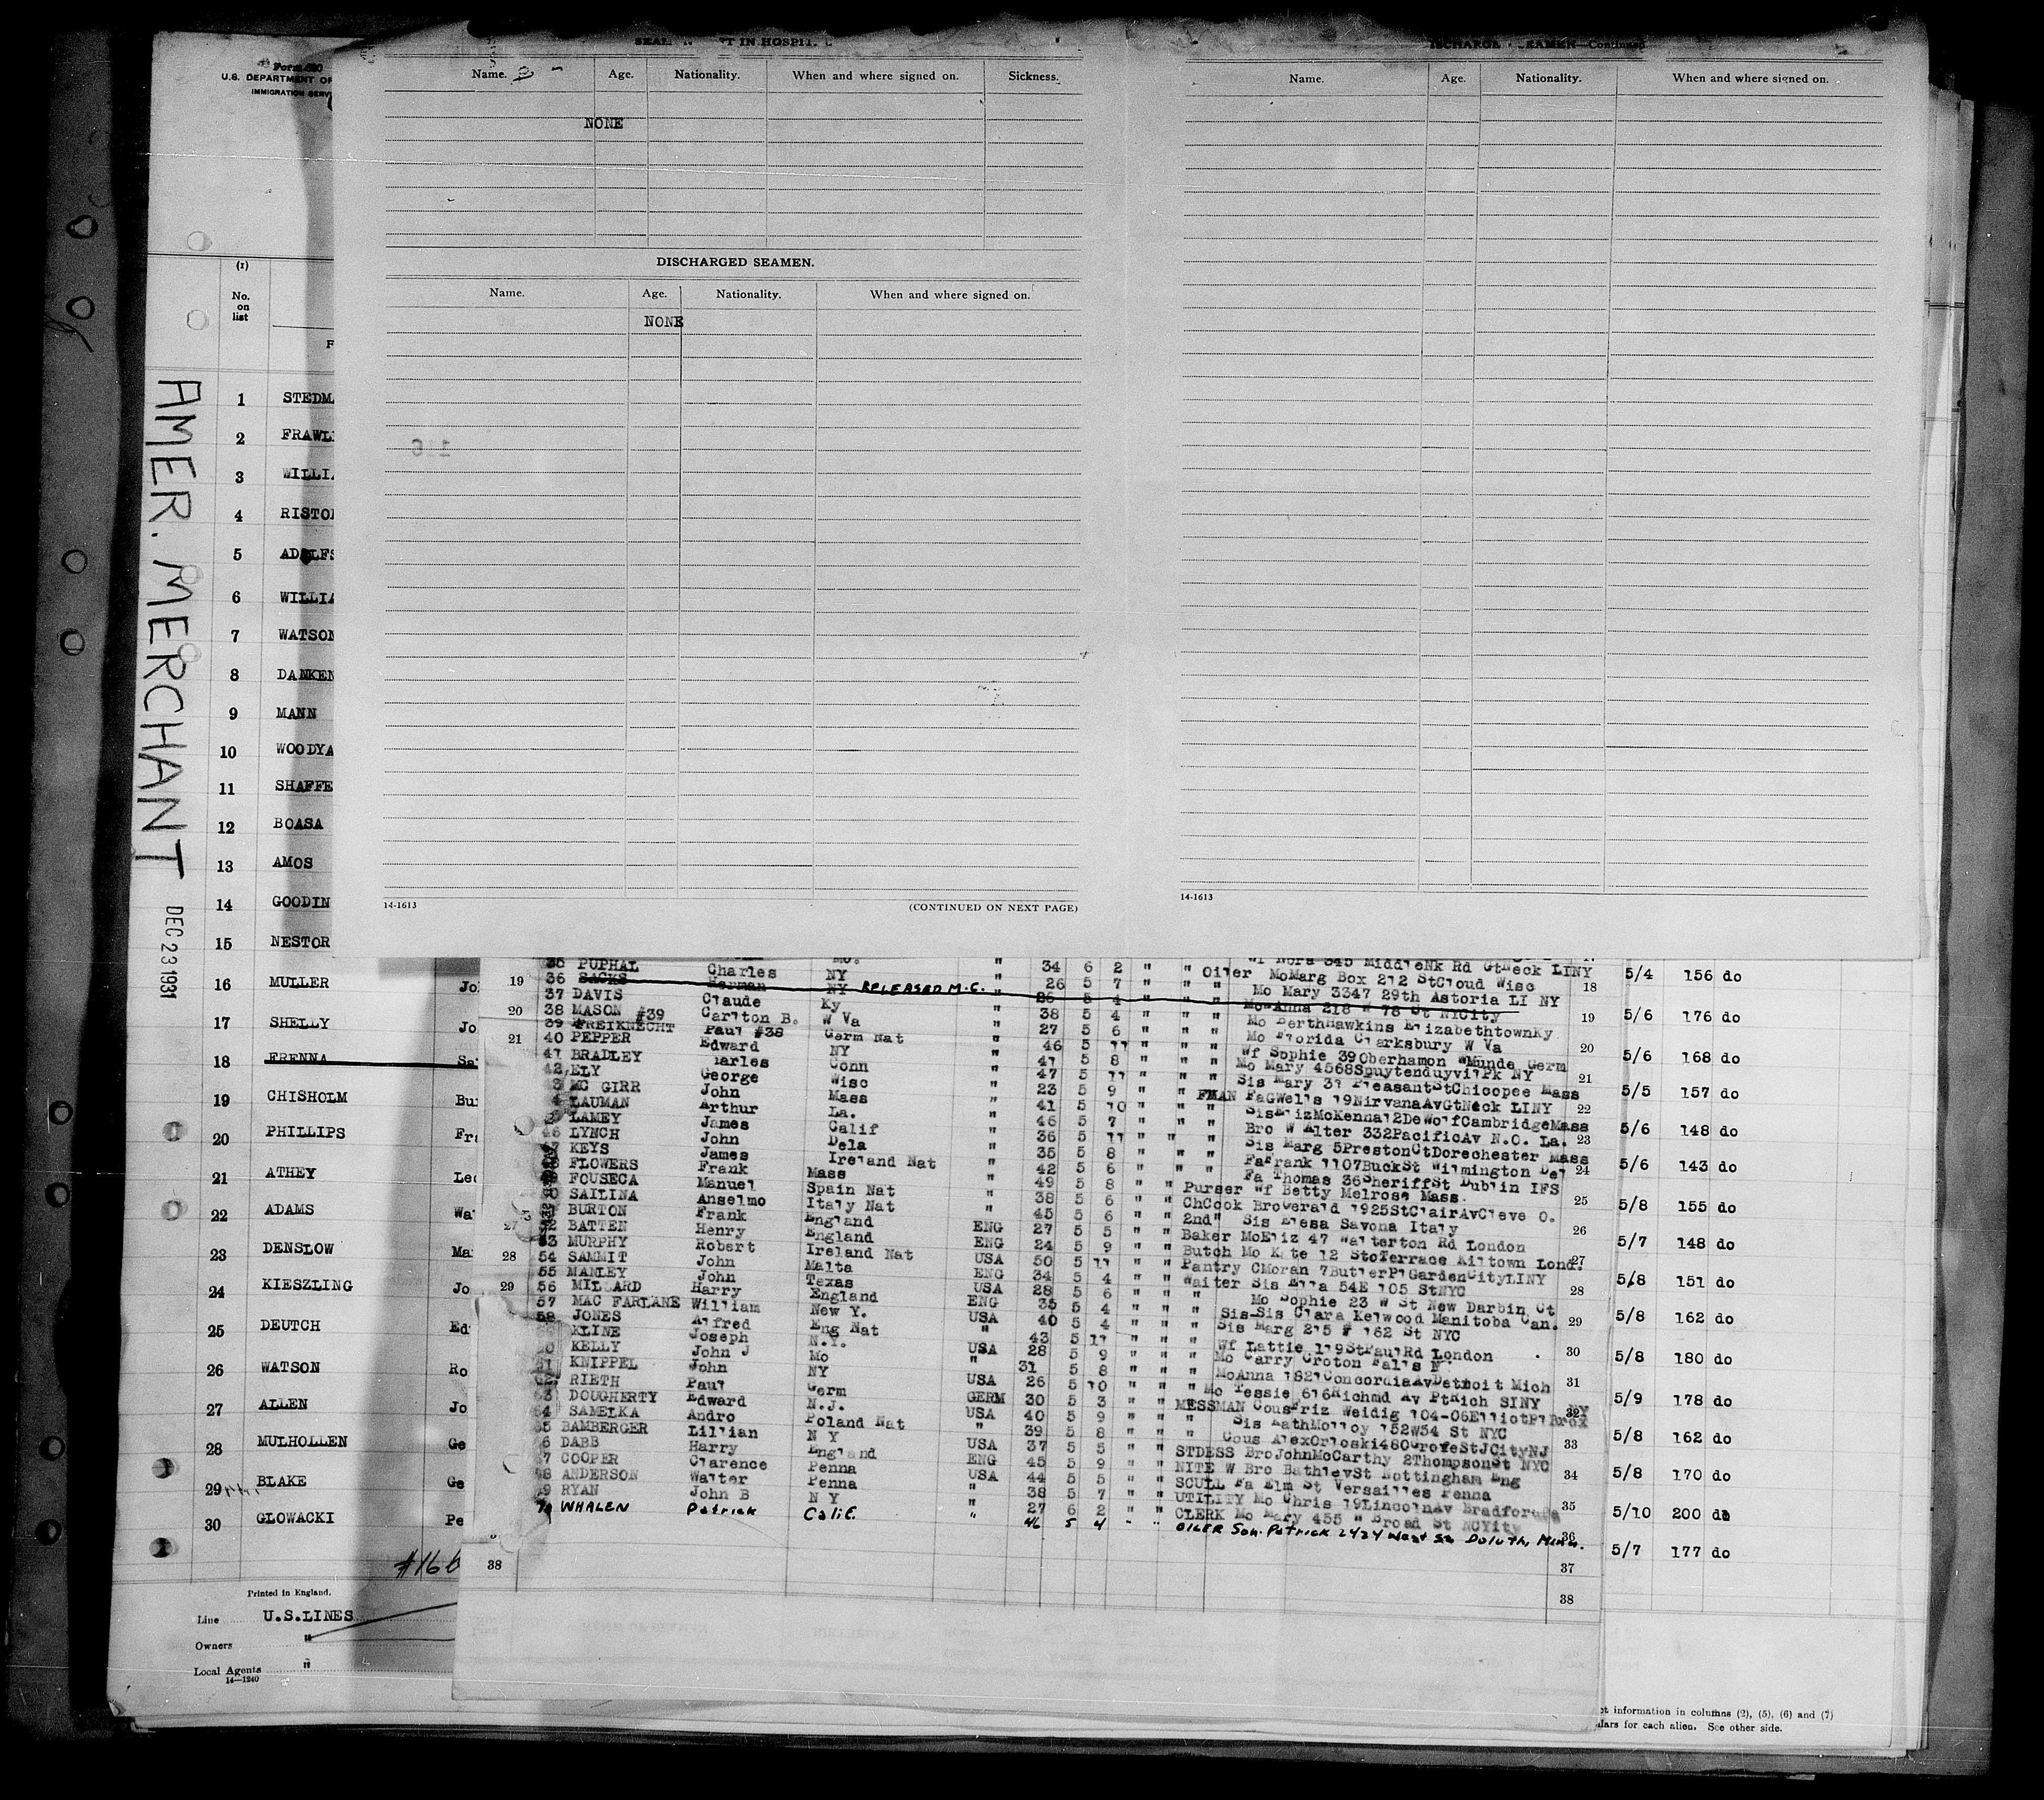 Form 680
U.S. DEPARTMENT OF
IMMIGRATION SERV
(1)
No.
on
list
F
AMER. MERCHANT
DEC 23 1931
1 STEDMA
2 FRAWL
3 WILLIA
4 RISTO
5 ADOLFS
6 WILLIA
7 WATSON
8 DANKEN
9 MANN
10 WOODYA
11 SHAFFE
12 BOASA
13 AMOS
14 GOODIN
15 NESTOR
16 MULLER Jo
17 SHELLY Jo
18 FRENNA Sa
19 CHISHOLM Bu
20 PHILLIPS Fr
21 ATHEY Le
22 ADAMS Wa
23 DENSLOW Ma
24 KIESZLING Jo
25 DEUTCH Ed
26 WATSON Ro
27 ALLEN Jo
28 MULHOLLEN Ge
29 BLAKE Ge
30 GLOWACKI Pe
Printed in England.
Line U.S.LINES
Owners "
Local Agents "
14—1240
IN HOSPIT
Name. Age. Nationality. When and where signed on. Sickness.
NONE
DISCHARGED SEAMEN.
Name. Age. Nationality. When and where signed on.
NONE
14-1613 (CONTINUED ON NEXT PAGE)
DISCHARGED SEAMEN—Continued
Name. Age. Nationality. When and where signed on.
14-1613
35 PUPHAL Charles Mo. " 34 6 2 " "
19 36 SACKS Herman NY RELEASED M.C. " 26 5 7 " "
37 DAVIS Claude Ky
20 38 MASON #39 Carlton B. W Va " 38 5 4 " "
39 FREIKNECHT Paul #38 Germ Nat " 27 5 6 " "
21 40 PEPPER Edward NY " 46 5 11 " "
41 BRADLEY Charles Conn " 41 5 8 " "
42 ELY George Wisc " 47 5 11 " "
43 MC GIRR John Mass " 23 5 9 " "
LAUMAN Arthur La. " 41 5 10 " "
LAMEY James Calif " 46 5 7 " "
46 LYNCH John Dela " 36 5 11 " "
47 KEYS James Ireland Nat " 35 5 8 " "
48 FLOWERS Frank Mass " 42 5 6 " "
49 FOUSECA Manuel Spain Nat " 49 5 8 " "
50 SAILINA Anselmo Italy Nat " 38 5 6 " "
51 BURTON Frank England " 45 5 6 " "
52 BATTEN Henry England ENG 27 5 5 " "
53 MURPHY Robert Ireland Nat ENG 24 5 9 " "
28 54 SAMMIT John Malta USA 50 5 11 " "
55 MANLEY John Texas ENG 34 5 4 " "
29 56 MILLARD Harry England USA 28 5 6 " "
57 MAC FARLANE William New Y. ENG 35 5 4 " "
58 JONES Alfred Eng Nat USA 40 5 4 " "
KLINE Joseph N.Y. " 43 5 11 " "
60 KELLY John J Mo USA 28 5 9 " "
61 KNIPPEL John NY " 31 5 8 " "
62 RIETH Paul Germ USA 26 5 10 " "
63 DOUGHERTY Edward N.J. GERM 30 5 3 " "
64 SAMELKA Andro Poland Nat USA 40 5 9 " "
65 BAMBERGER Lillian N Y " 39 5 8 " "
66 DABB Harry England USA 37 5 5 " "
67 COOPER Clarence Penna ENG 45 5 9 " "
68 ANDERSON Walter Penna USA 44 5 5 " "
69 RYAN John B N Y " 38 5 7 " "
70 WHALEN Patrick Calif. " 27 6 2 " "
" 46 5 4 " "
38
Wf Nora 345 MiddleNk Rd GtNeck LINY
Oiler MoMarg Box 212 StCloud Wisc 18
Mo Mary 3347 29th Astoria LI NY
Mo Anna 218 W 78 St NYCity 19
Mo BerthHawkins ElizabethtownKy
Mo Florida Clarksbury W Va 20
Wf Sophie 39Oberhamon WMunde Germ
Mo Mary 4568SpuytenduyvilPk NY 21
Sis Mary 31 PleasantStChicopee Mass
FMAN FaGWells 19NirvanaAvGtNeck LINY 22
SisElizMcKenna12DeWolfCambridgeMass
Bro W Alter 332PacificAv N.O. La. 23
Sis Marg 5PrestonCtDorechester Mass
FaFrank 1107BuckSt Wilmington Del 24
Fa Thomas 36SheriffSt Dublin IFS
Purser Wf Betty Melrose Mass. 25
ChCook BroGerald 1925StClairAvCleve O.
2nd" Sis Elesa Savona Italy 26
Baker MoEliz 47 Walterton Rd London
Butch Mo Kate 12 StoTerrace Kiltown Lond. 27
Pantry CMoran 7ButlerPlGardenCityLINY
Waiter Sis Ella 54E 105 StNYC 28
" Mo Sophie 23 W St New Darbin Ct
" Sis-Sis Clara Kelwood Manitoba Can. 29
" Sis Marg 215 W 162 St NYC
" Wf Lattie 119StPaulRd London 30
" Mo Carry Croton Falls N
" MoAnna 1821ConcordiaAvDetroit Mich 31
" Mo Tessie 616Richmd Av PtRich SINY
MESSMAN CousFriz Weidig 104-06ElliotPlBrox NY 32
" Sis KathMolloy 152W54 St NYC
" Cous AlexOrloski48GroveStJCityNJ 33
STDESS BroJohnMcCarthy 2ThompsonSt NYC
NITE W Bro BathleySt Nottingham Eng 34
SCULL Fa Elm St Versailles Penna
UTILITY Mo Chris 19LincolnAv Bradfordpa 35
CLERK Mo Mary 455 W Broad St NCYity
OILER Son-Patrick 2424 West St Doluth, Minn. 36
37
38
5/4 156 do
5/6 176 do
5/6 168 do
5/5 157 do
5/6 148 do
5/6 143 do
5/8 155 do
5/7 148 do
5/8 151 do
5/8 162 do
5/8 180 do
5/9 178 do
5/8 162 do
5/8 170 do
5/10 200 do
5/7 177 do
information in columns (2), (5), (6) and (7)
for each alien. See other side.